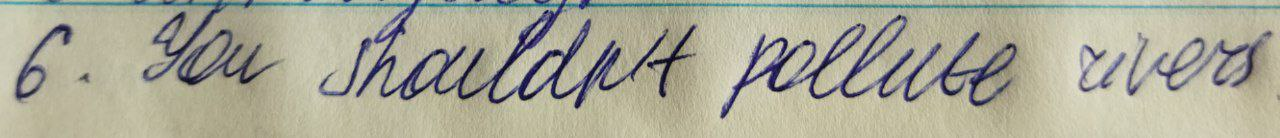 6. You shouldn't pollute rivers.